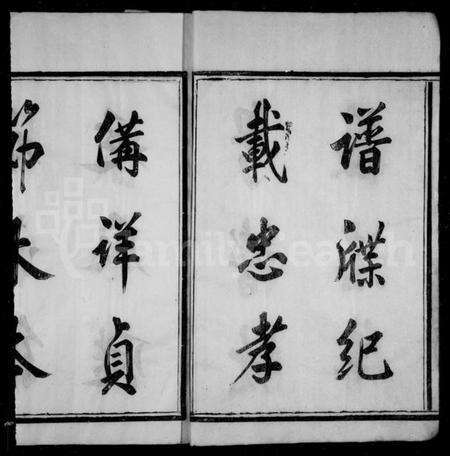 譜牒紀
載忠孝
備詳貞
節
FamilySearch